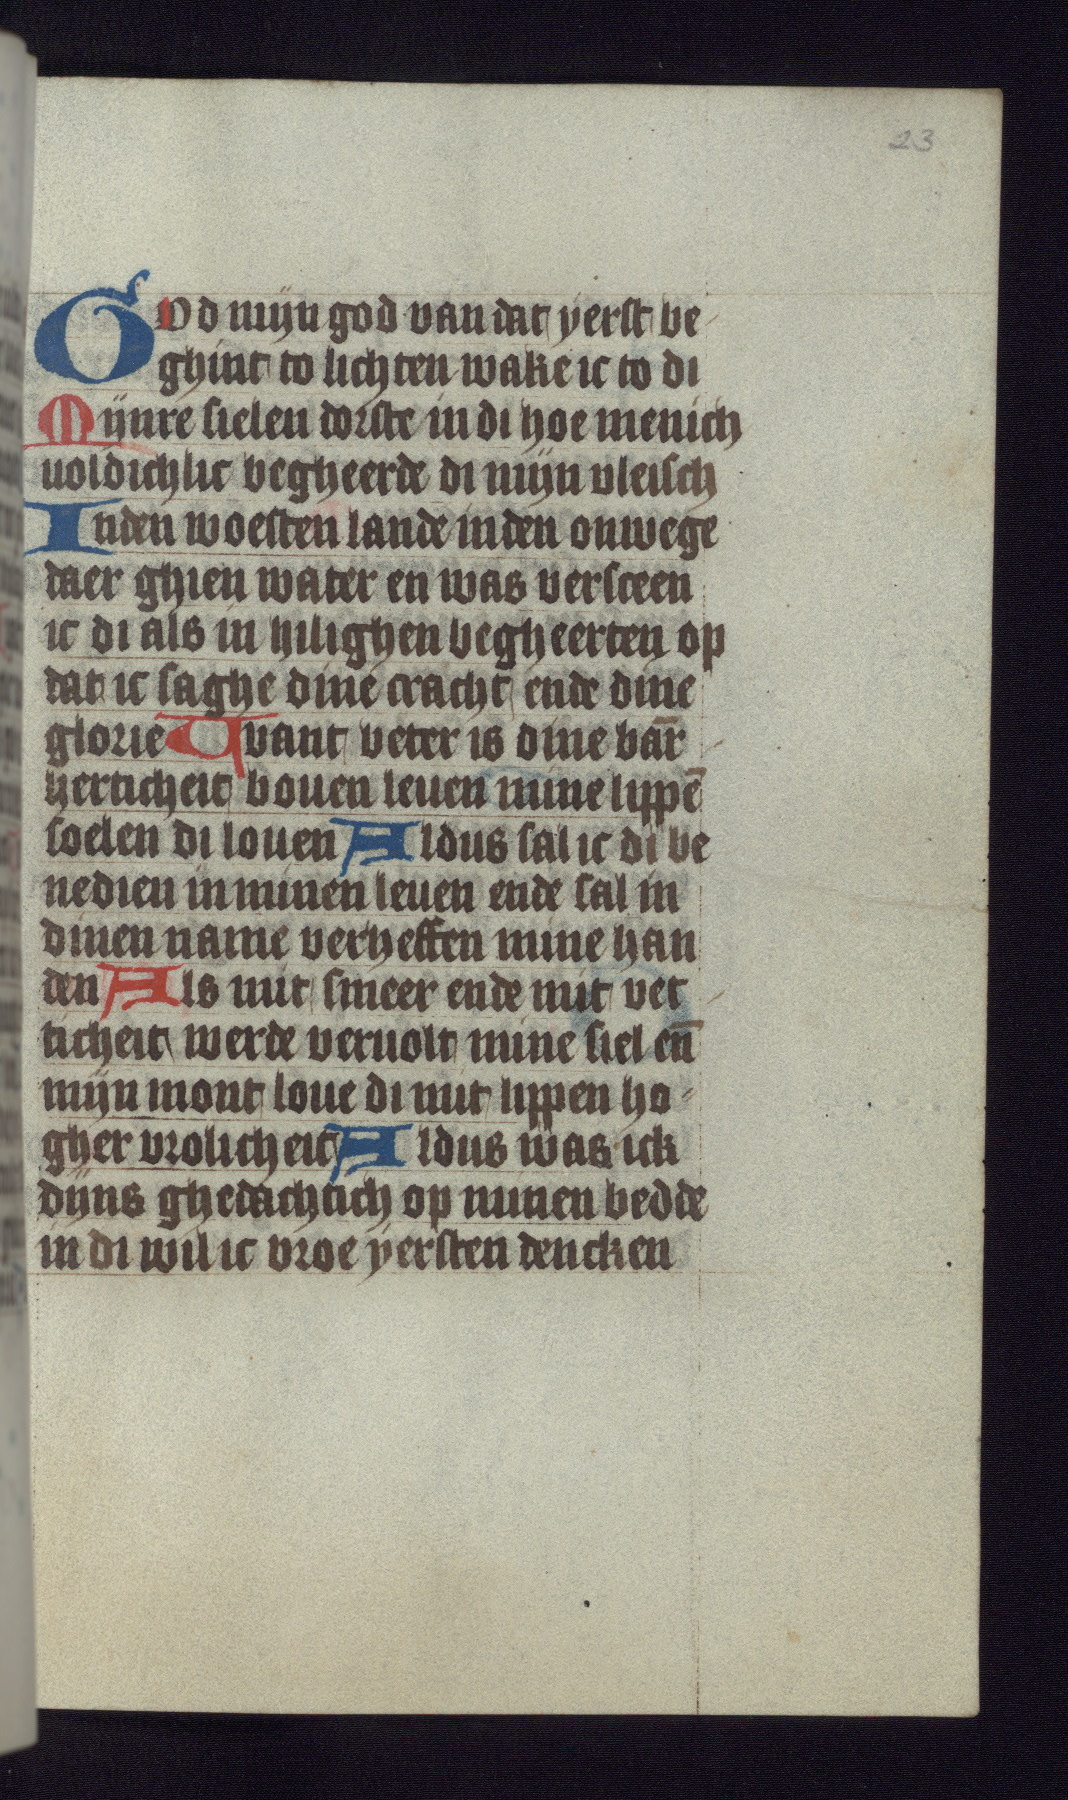 23
God mijn god van dat yerst be-
ghint to lichten wake ic to di
Mijnre sielen dorste in di hoe menich
uoldichlic begheerde di mijn vleisch
Inden woesten lande inden onwege
daer ghien water en was versceen
ic di als in hilighen begheerten op
dat ic saghe dine cracht ende dine
glorie Want beter is dine barm̄
herticheit bouen leuen mine lippē
soelen di louen Aldus sal ic di be
nedien in minen leuen ende sal in
dinen name verheffen mine han
den Als mit smeer ende mit vet
ticheit werde veruolt mine siel eñ
mijn mont loue di mit lippen ho-
gher vrolicheit Aldus was ick
dijns ghedachtich op minen bedde
in di wil ic vroe yersten dencken